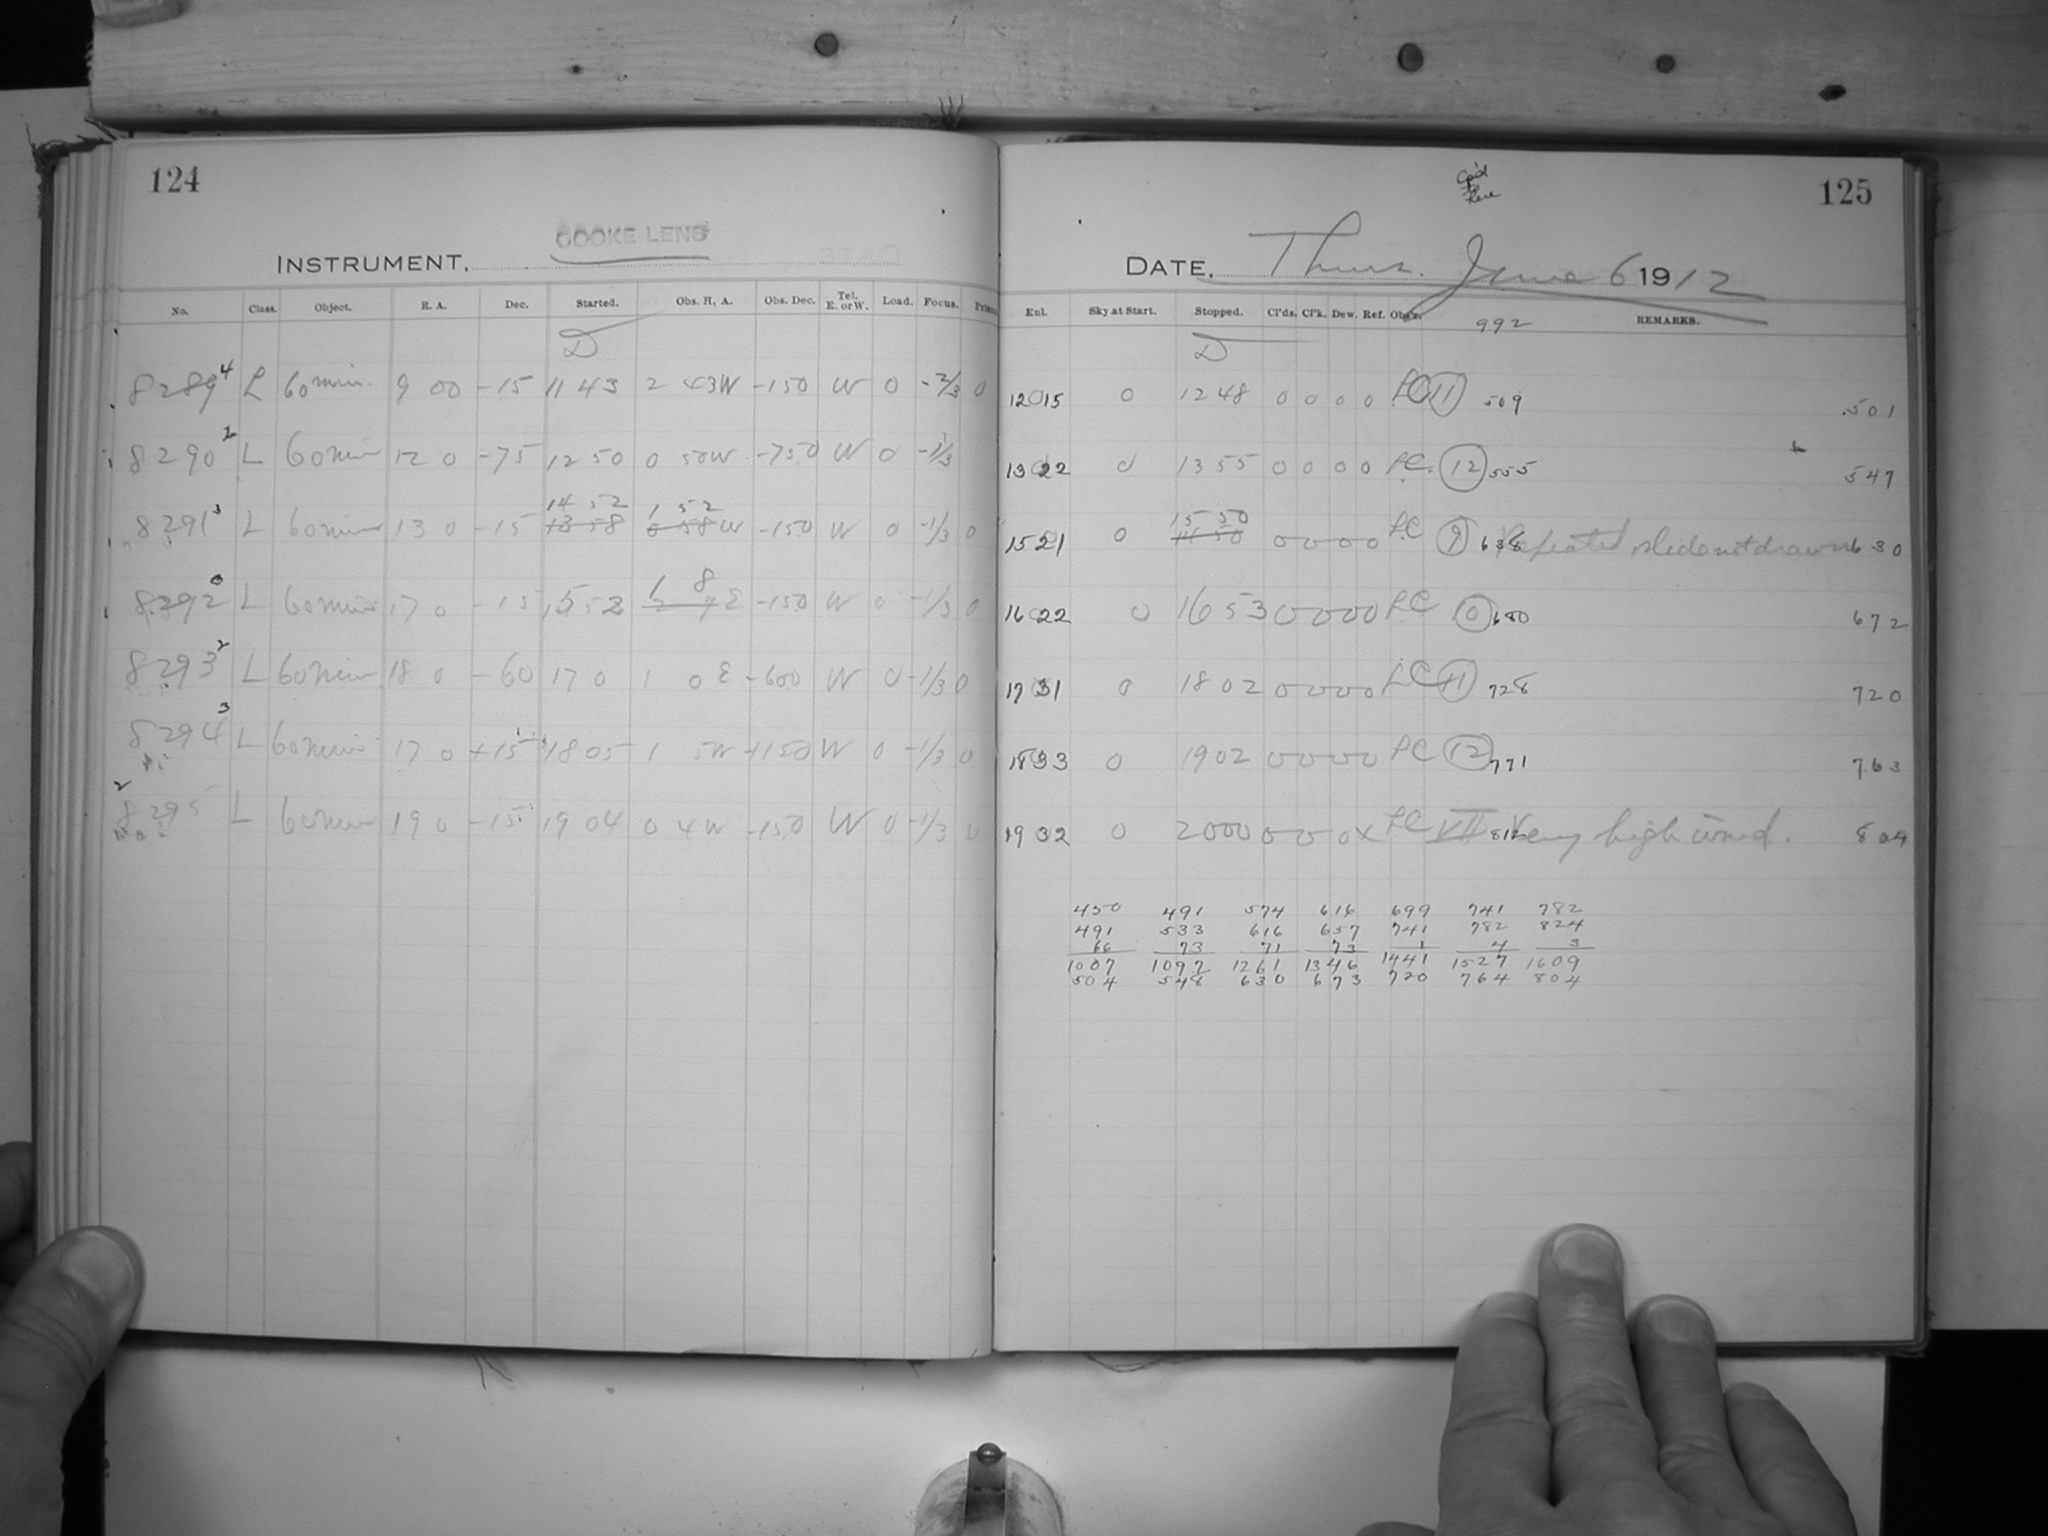 124
COOKE LENS
INSTRUMENT,
No. Class. Object. R. A. Dec. Started. Obs. H. A. Obs. Dec. Tel. E. or W. Load. Focus.
D
8289 4 L 60 min. 9 00 -15 11 43 2 43W -15 0 W 0 -2/3 0
8290 2 L 60 min 12 0 -75 12 50 0 50W -75 0 W 0 -1/3
14 52 1 52
8291 3 L 60 min 13 0 -15 13 58 0 58 W -15 0 W 0 -1/3 0
8292 0 L 60 min 17 0 -15 15 53 E -15 0 W 0 -1/3 0
8293 2 L 60 min 18 0 -60 17 0 1 0 E -60 0 W 0 -1/3 0
8294 3 L 60 min 17 0 +15 18 05 1 5W +15 0 W 0 -1/3 0
8295 2 L 60 min 19 0 -15 19 04 0 4W -15 0 W 0 -1/3 0
Cp'd to here
125
DATE, Thurs. June 6 1912
Sky at Start. Stopped. Cl'ds. Cl'k. Dew. Ref. Obs'r. 992 REMARKS.
D
12 015 0 12 48 0 0 0 0 LC 11 509 .501
13 022 0 13 55 0 0 0 0 LC. 12 555 547
15 50
15 21 0 14 50 0 0 0 0 LC 9 638 Repeated slide not drawn 630
16 022 0 16 53 0 0 0 0 LC 10 680 672
17 31 0 18 02 0 0 0 0 LC 11 728 720
18 33 0 19 02 0 0 0 0 LC 12 771 763
19 32 0 20 00 0 0 0 x LC VII 812 Very high wind. 804
450 491 574 616 699 741 782
491 533 616 657 741 782 824
66 73 71 73 1 4 3
1007 1097 1261 1346 1441 1527 1609
504 548 630 673 720 764 804